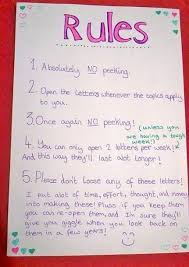 Rules
1. Absolutely NO peeking.
2. Open the letters whenever the topics apply
to you.
3. Once again NO peeking! (unless you
are having a tough
week!)
4. You can only open 2 letters per week!
And this way they'll last alot longer!
5. Please don't loose any of these letters!
I put alot of time, effort, thought, and money
into making these! Plus if you keep them
you can re-open them, and I'm sure they'll
give you giggle when you look back on
them in a few years!